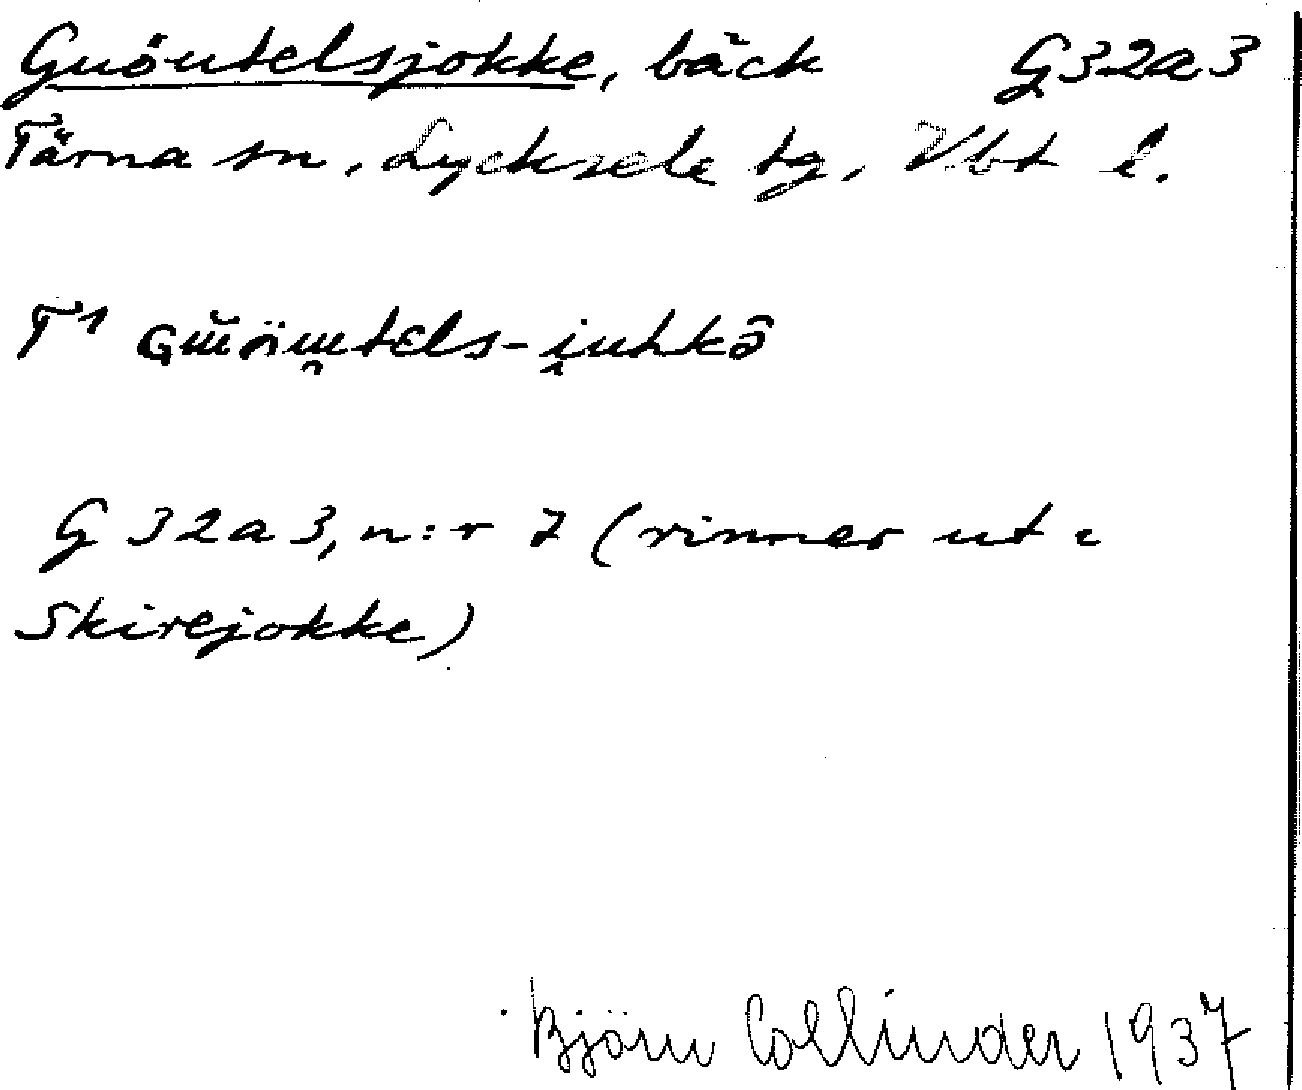 Guöutelsjokke, bäck G32a3
Tärna sn, Lycksele tg, Vbt l.
T¹ Gɯ̆öɯ̯tεls-i̯uhkə̂
G 32a3, n:r 7 (rinner ut i
Skirejokke)
Björn Collinder 1937